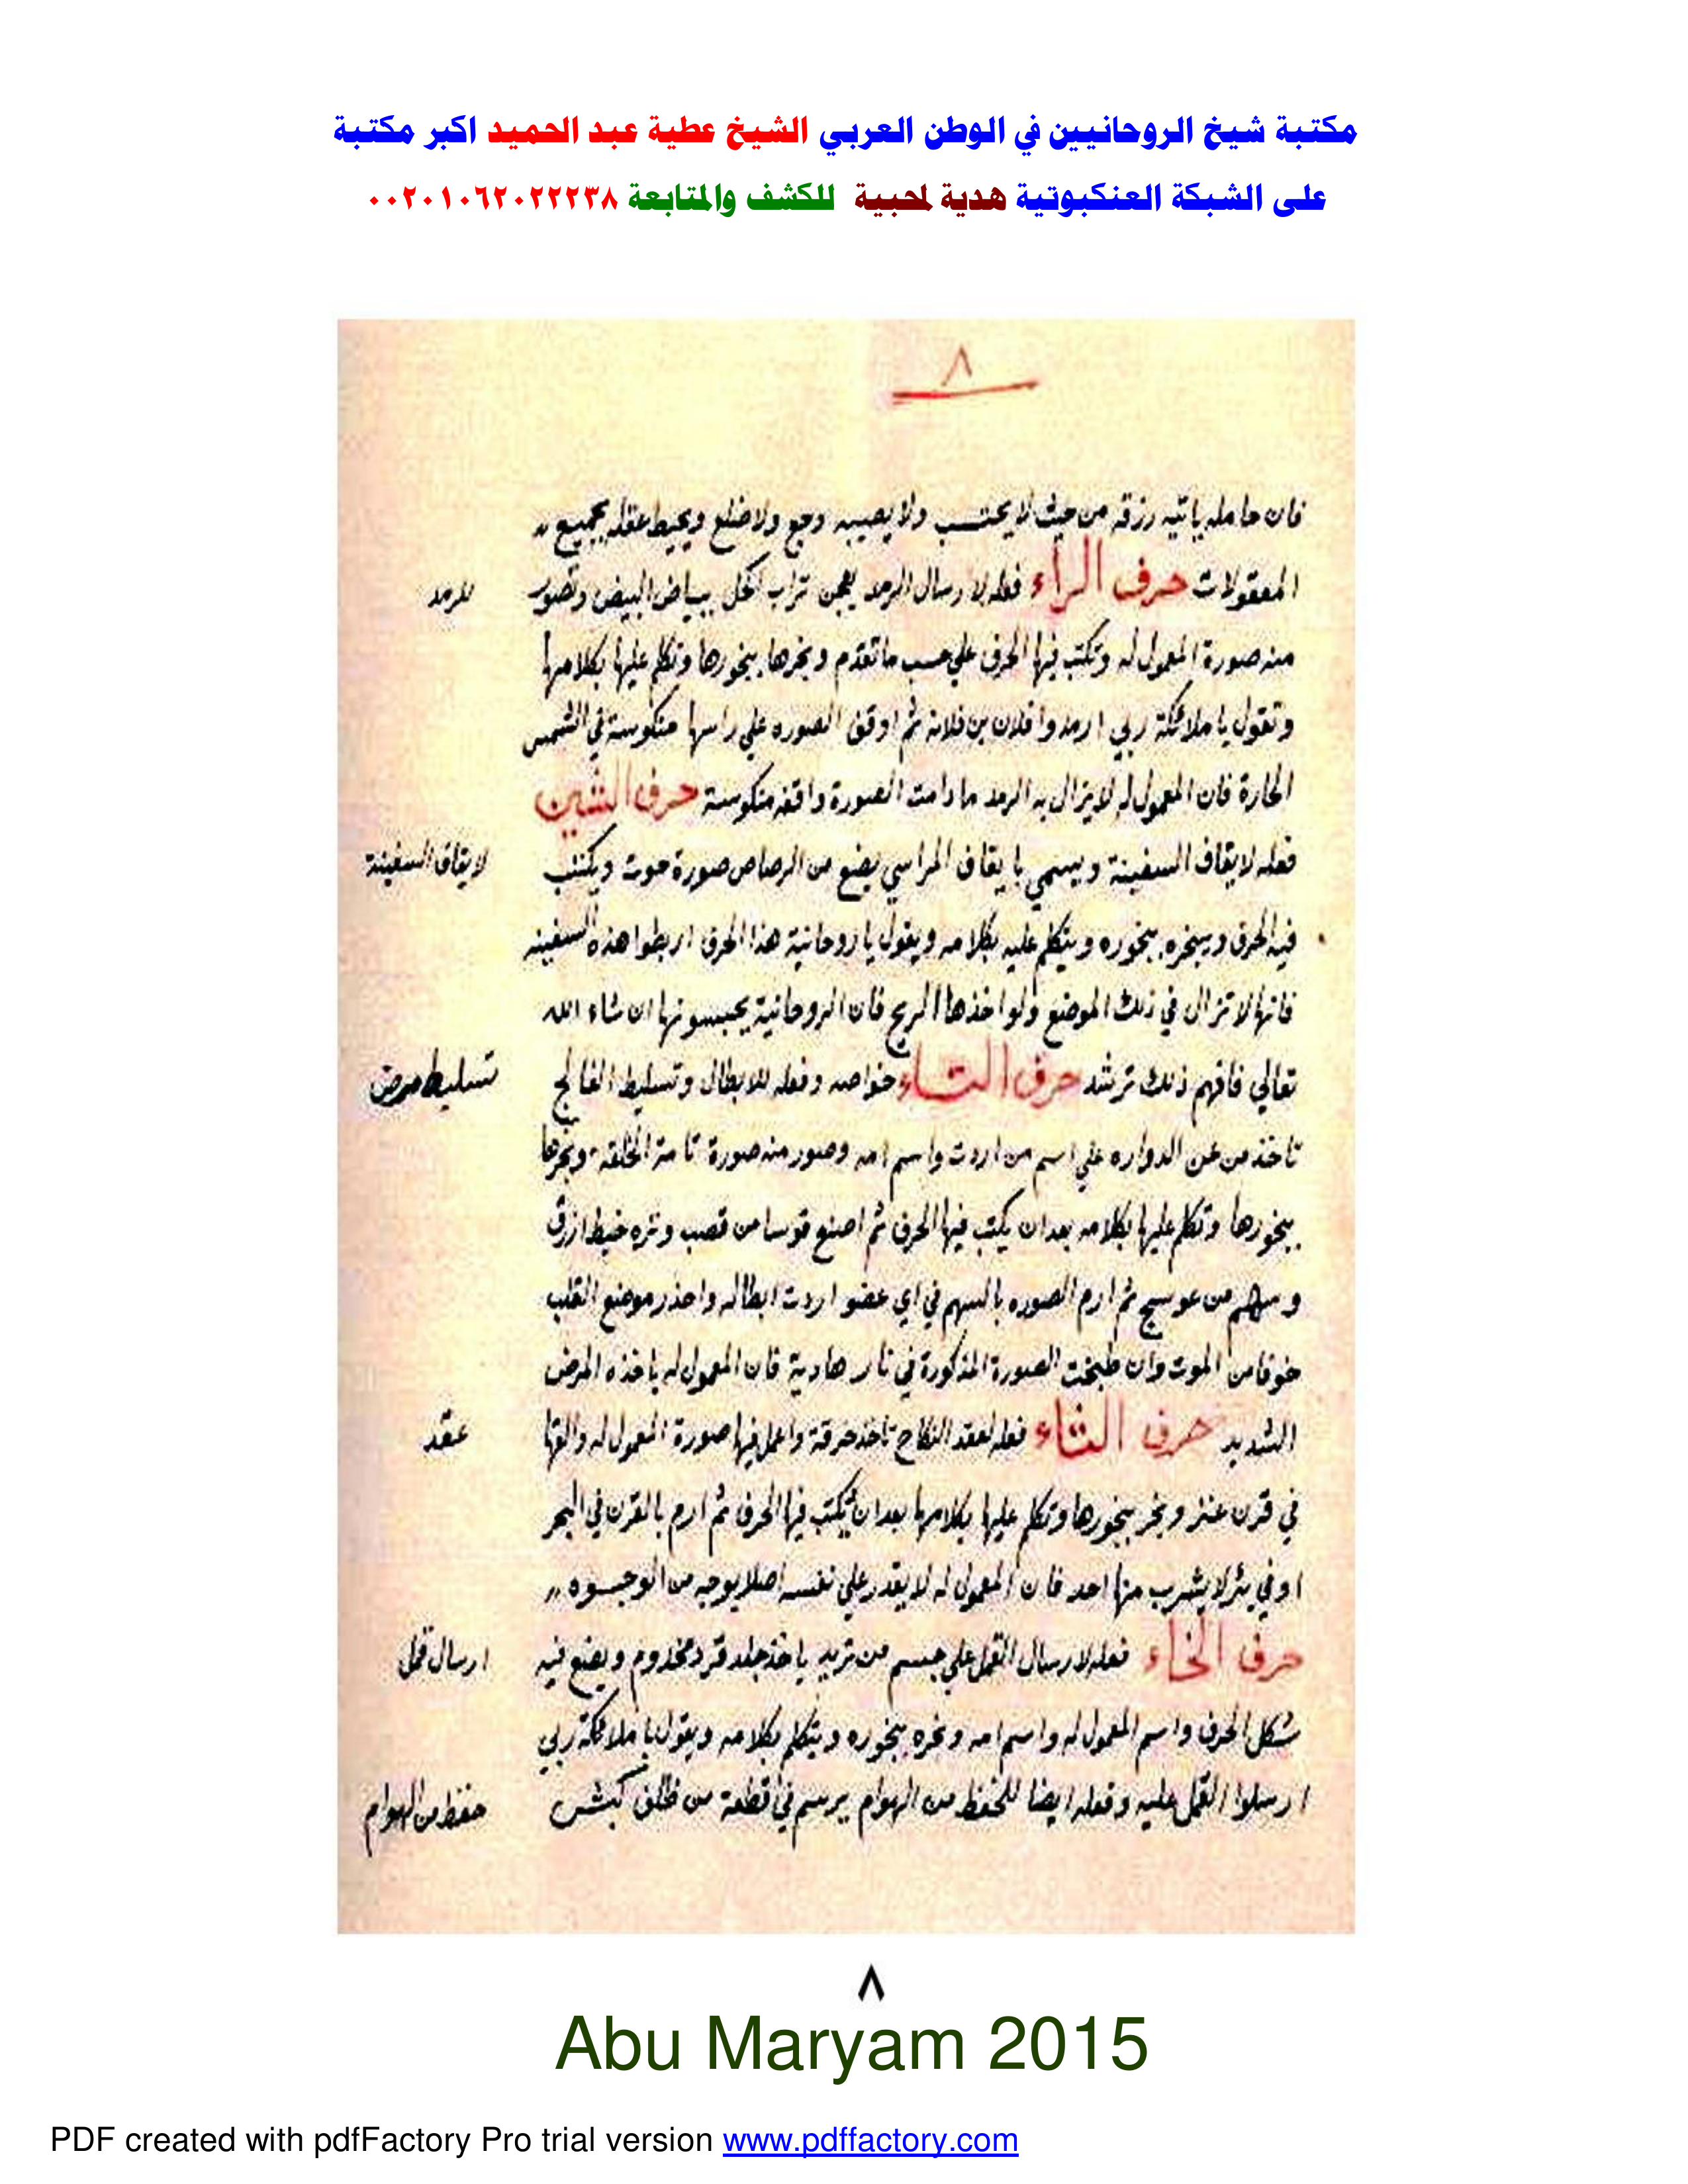 مكتبة شيخ الروحانيين في الوطن العربي الشيخ عطية عبد الحميد اكبر مكتبة
على الشبكة العنكبوتية هدية لمحبية للكشف والمتابعة ٠٠٢٠١٠٦٢٠٢٢٢٣٨
٨
فان حامله ياتيه رزقه من حيث لا يحتسب ولا يصيبه وجع ولا ضلع ويحيط عقله بجميع
المعقولات حرف الراء فعله لارسال الرمد يعجن تراب نخل ببياض البيض وتصور
للرمد
منه صورة المعمول له وتكتب فيها الحرف علي حسب ما تقدم وبخرها ببخورها وتكلم عليها بكلامها
وتقول يا ملائكة ربي ارمدوا فلان بن فلانه ثم اوقف الصوره علي راسها منكوسة في الشمس
الحارة فان المعمول له لا يزال به الرمد ما دامت الصورة واقفه منكوسة حرف الشين
فعله لايقاف السفينة ويسمي بايقاف المراسي يصنع من الرصاص صورة حوت ويكتب
لايقاف السفينة
فيه الحرف ويبخره ببخوره ويتكلم عليه بكلامه ويقول يا روحانية هذا الحرف اربطوا هذه السفينه
فانها لا تزال في ذلك الموضع ولو اخذها الريح فان الروحانية يحبسونها ان شاء الله
تعالي فافهم ذلك ترشد حرف التاء خواصه وفعله للابطال وتسليط الفالج
تسليط مرض
تاخذ من عن الدواره علي اسم من اردت واسم امه وصور منه صورة تامة الخلقة وبخرها
ببخورها وتكلم عليها بكلامه بعد ان يكتب فيها الحرف ثم اصنع قوسا من قصب وتره خيط ازرق
وسهم من عوسج ثم ارم الصوره بالسهم في اي عضو اردت ابطاله واحذر موضع القلب
خوفا من الموت وان طبخت الصورة المذكورة في نار هادية فان المعمول له ياخذه المرض
الشديد حرف الثاء فعله لعقد النكاح تاخذ خرقة واعمل فيها صورة المعمول له والقها
عقد
في قرن عنز وبخر ببخورها وتكلم عليها بكلامها بعد ان تكتب فيها الحرف ثم ارم بالقرن في البحر
او في بئر لا يشرب منها احد فان المعمول له لا يقدر علي نفسه اصلا بوجه من الوجوه
حرف الخاء فعله لارسال القمل علي جسم من تريد ياخذ جلد قرد مخدوم ويصنع فيه
ارسال قمل
شكل الحرف واسم المعمول له واسم امه وبخره ببخوره ويتكلم بكلامه ويقول يا ملائكة ربي
ارسلوا القمل عليه وفعله ايضا للحفظ من الهوام يرسم في قطعة من ظلف كبش
حفظ من الهوام
٨
Abu Maryam 2015
PDF created with pdfFactory Pro trial version www.pdffactory.com